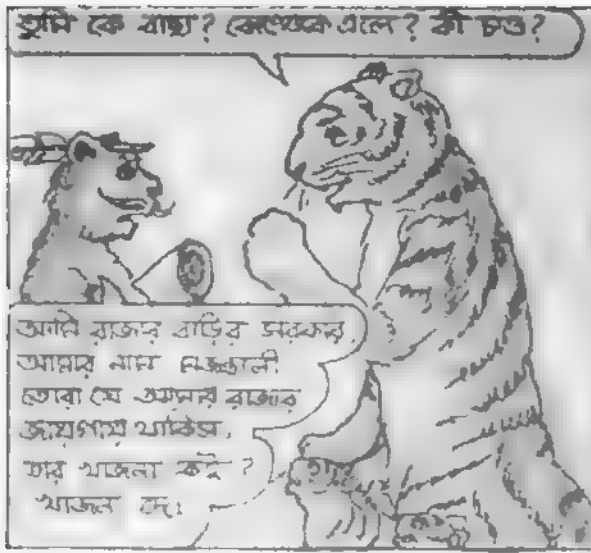 তুমি কে বাছা? কোত্থেকে এলে? কী চাও?
আমি রাজার বাড়ির সরকার,
আমার নাম মজন্তালী
তোরা যে আমার রাজার
জায়গায় থাকিস,
তার খাজনা কই?
খাজনা দে।